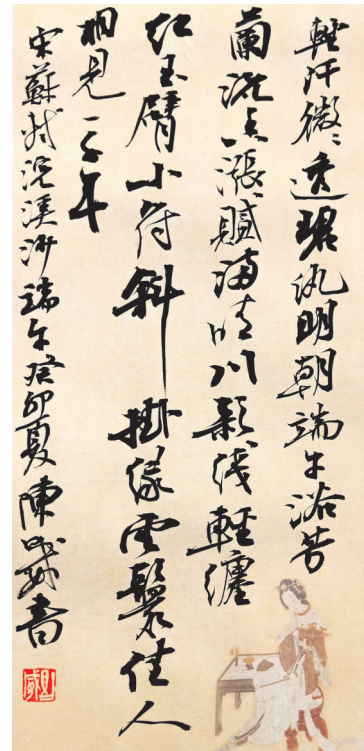 輕汗微微透碧紈明朝端午浴芳
蘭流香漲膩滿晴川彩綫輕纏
紅玉臂小符斜掛緑雲鬟佳人
相見一千年
宋蘇軾浣溪沙端午癸卯夏陳書